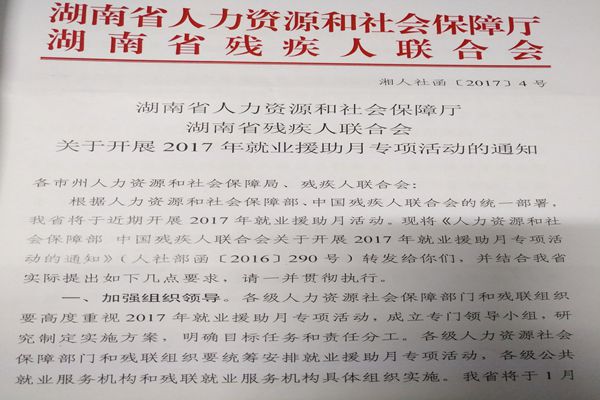 湖南省人力资源和社会保障厅
湖南省残疾人联合会
湘人社函〔2017〕4号
湖南省人力资源和社会保障厅
湖南省残疾人联合会
关于开展2017年就业援助月专项活动的通知
各市州人力资源和社会保障局、残疾人联合会：
根据人力资源和社会保障部、中国残疾人联合会的统一部署，
我省将于近期开展2017年就业援助月活动。现将《人力资源和社
会保障部 中国残疾人联合会关于开展2017年就业援助月专项活
动的通知》（人社部函〔2016〕290号）转发给你们，并结合我省
实际提出如下几点要求，请一并贯彻执行。
一、加强组织领导。各级人力资源社会保障部门和残联组织
要高度重视2017年就业援助月专项活动，成立专门领导小组，研
究制定实施方案，明确目标任务和责任分工。各级人力资源社会
保障部门和残联组织要统筹安排就业援助月专项活动，各级公共
就业服务机构和残联就业服务机构具体组织实施。我省将于1月